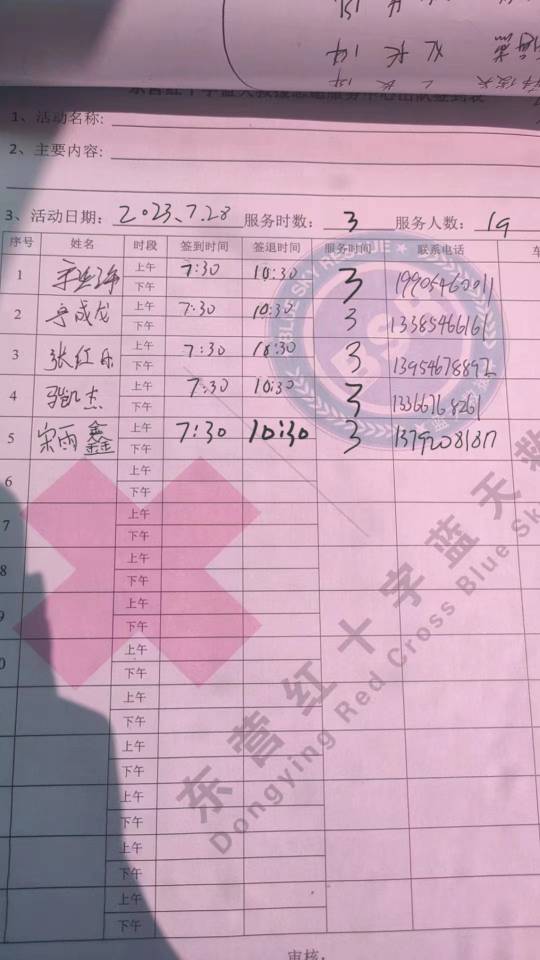 1、活动名称:
2、主要内容:
3、活动日期: 2023.7.28 服务时数: 3 服务人数: 19
序号 姓名 时段 签到时间 签退时间 服务时间 联系电话
1 上午 7:30 10:30 3
下午
2 成龙 上午 7:30 10:30 3
下午
3 张红 上午 7:30 10:30 3 13954678892
下午
4 凯杰 上午 7:30 10:30 3 13366768261
下午
5 宋雨鑫 上午 7:30 10:30 3
下午
6 上午
下午
7 上午
下午
8 上午
下午
9 上午
下午
0 上午
下午
上午
下午
上午
下午
上午
下午
上午
下午
上午
下午
BLUE SKY RESCUE
东营红十字蓝天救
Dongying Red Cross Blue Sk
审核: